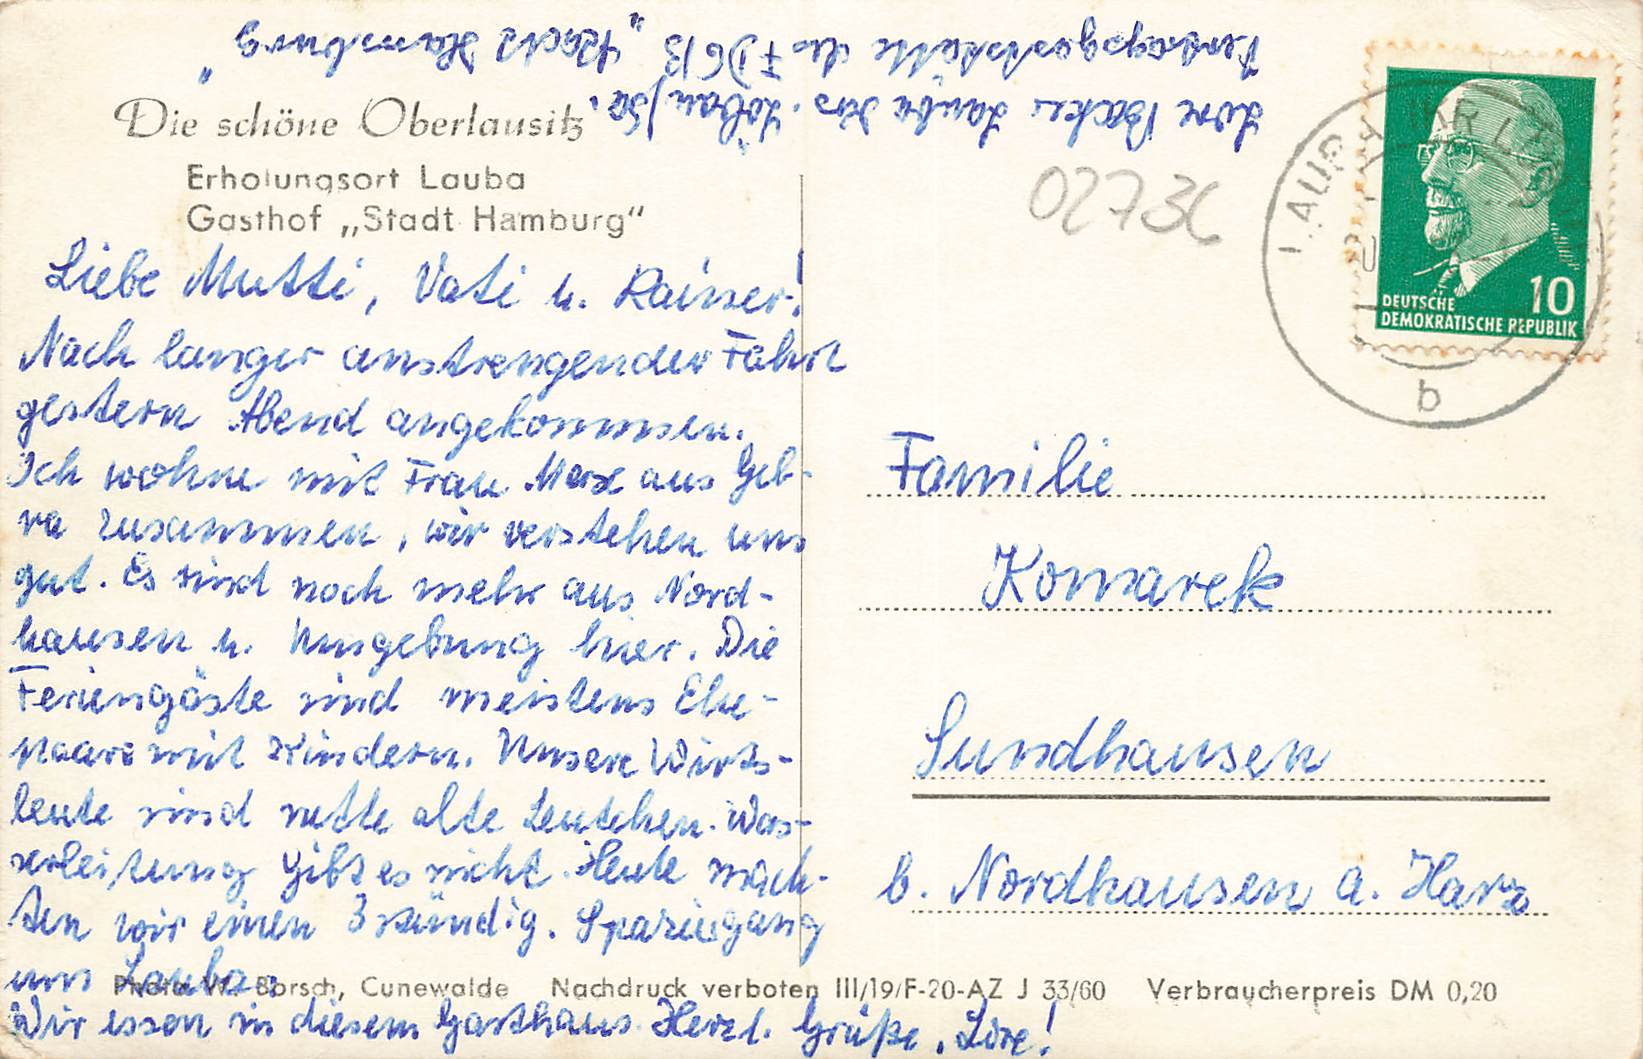 Lore Backes Lauba Krs. Löbau/Sa.
Vertragsgaststätte des FDGB „Stadt Hamburg"
Die schöne Oberlausitz
Erholungsort Lauba
Gasthof „Stadt Hamburg"
Liebe Mutti, Vati u. Rainer!
Nach langer anstrengender Fahrt
gestern Abend angekommen.
Ich wohne mit Frau Marx aus Geb-
ra zusammen, wir verstehen uns
gut. Es sind noch mehr aus Nord-
hausen u. Umgebung hier. Die
Feriengäste sind meistens Ehe-
paare mit Kindern. Unsere Wirts-
leute sind nette alte Leutchen. Was-
serleitung gibt es nicht. Heute mach-
ten wir einen 3stündig. Spaziergang
um Lauba.
Wir essen in diesem Gasthaus. Herzl. Grüße, Lore!
02736
DEUTSCHE
DEMOKRATISCHE REPUBLIK
10
b
Familie
Komarek
Sundhausen
b. Nordhausen a. Harz
Photo W. Borsch, Cunewalde Nachdruck verboten III/19/F-20-AZ J 33/60 Verbraucherpreis DM 0,20